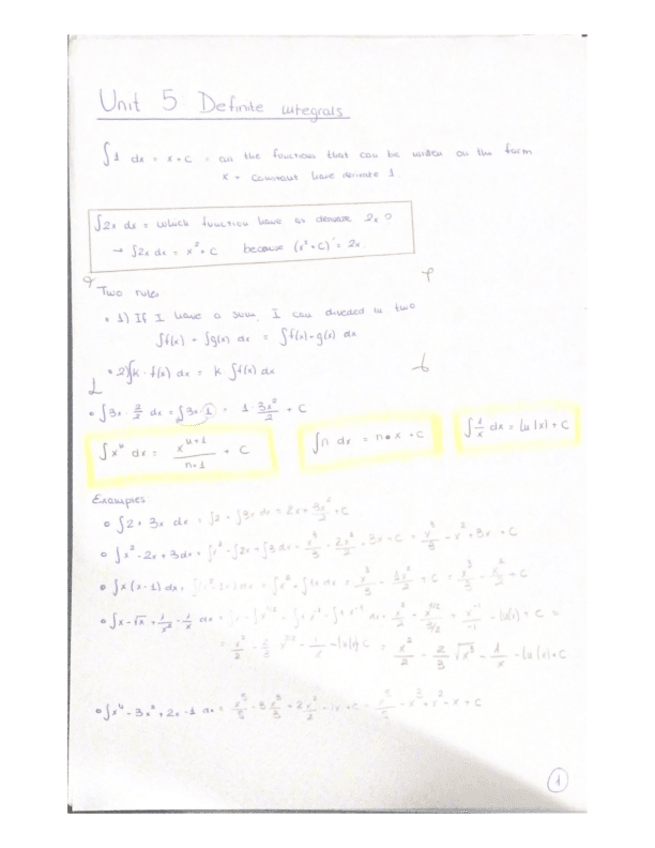 Unit 5 Definite integrals
∫1 dx = x + C = all the functions that can be written on the form
x + constant have derivate 1
∫2x dx = which function have as derivate 2x?
→ ∫2x dx = x² + C because (x² + C)' = 2x
Two rules
• 1) If I have a sum, I can divided in two
∫f(x) + ∫g(x) dx = ∫f(x) + g(x) dx
• 2) ∫k · f(x) dx = k · ∫f(x) dx
1 · 3x²/2 + C
∫xⁿ dx = xⁿ⁺¹/n+1 + C
∫n dx = n • x + C
∫1/x dx = ln|x| + C
Examples
• ∫2 + 3x dx = ∫2 + ∫3x dx = 2x + 3x²/2 + C
• ∫x² - 2x + 3 dx = ∫x² - ∫2x + ∫3 dx = x³/3 - 2x²/2 + 3x + C = x³/3 - x² + 3x + C
• ∫x(x-1) dx =
x³/3 - x²/2 + C
• ∫x - √x + 1/x² - 1/x dx =
= x²/2 - 2/3 √x³ - 1/x - ln|x| + C
• ∫x⁴ - 3x² + 2x - 1 dx = x⁵/5 - 3x³/3 + 2x²/2 - 1x + C = x⁵/5 - x³ + x² - x + C
1